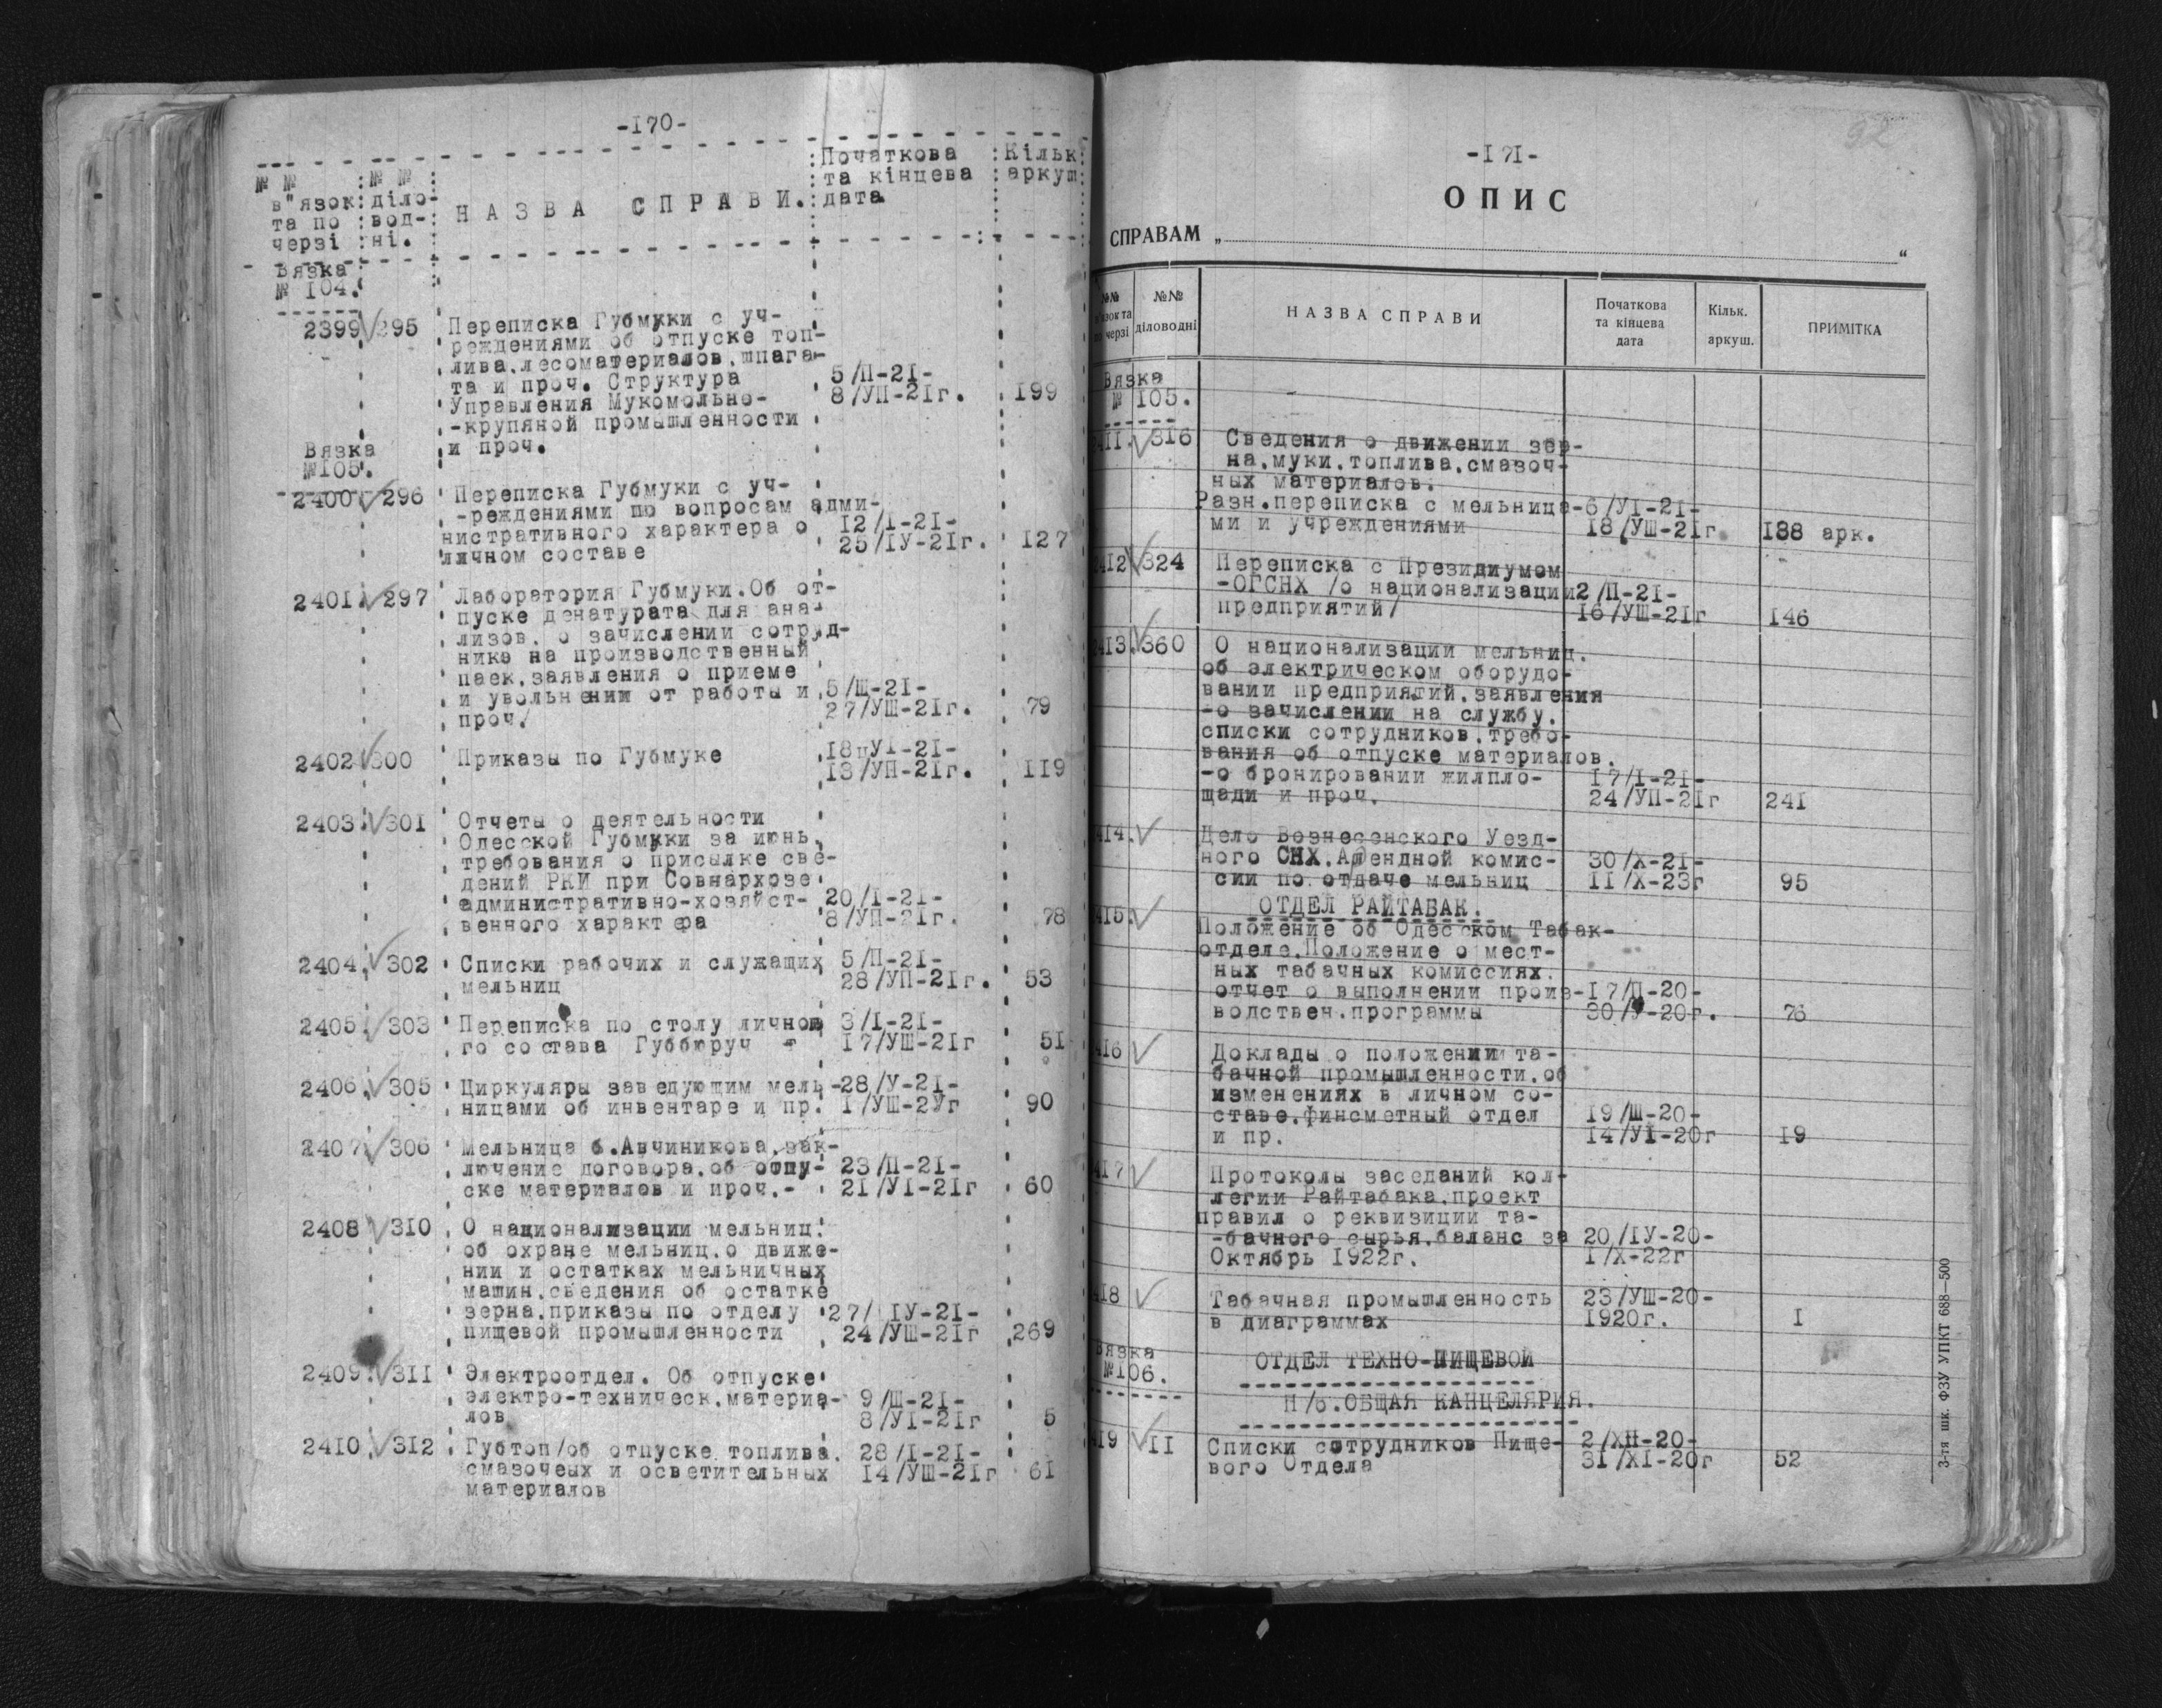 -170-
№ №
в"язок
та по
черзі
№ №
діло-
вод-
ні.
НАЗВА СПРАВИ.
Початкова
та кінцева
дата
Кільк
аркуш
Вязка
№ 104.
2399 295 Переписка Губмуки с уч-
реждениями об отпуске топ-
лива, лесоматериалов, шпага-
та и проч. Структура 5/П-21-
Управления Мукомольно- 8/УП-21г. 199
-крупяной промышленности
и проч.
Вязка
№105.
2400 296 Переписка Губмуки с уч-
-реждениями по вопросам адми-
нистративного характера о 12/I-21-
личном составе 25/IУ-21г. 127
2401. 297 Лаборатория Губмуки. Об от-
пуске денатурата для ана-
лизов, о зачислении сотруд-
ника на производственный
паек, заявления о приеме
и увольнении от работы и 5/Ш-21-
проч/ 27/УШ-21г. 79
2402 300 Приказы по Губмуке 18пУI-21-
13/УП-21г. 119
2403. 301 Отчеты о деятельности
Одесской Губмуки за июнь,
требования о присылке све-
дений РКИ при Совнархозе
административно-хозяйст- 20/I-21-
венного характера 8/УП-21г. 78
2404. 302 Списки рабочих и служащих 5/П-21-
мельниц 28/УП-21г. 53
2405. 303 Переписка по столу личног 3/I-21-
го состава Губбюруч 17/УШ-21г 51
2406. 305 Циркуляры заведующим мель- 28/У-21-
ницами об инвентаре и пр. I/УШ-2Уг 90
2407 306 Мельница б.Авчиникова, зак-
лючение договора, об отпу- 23/П-21-
ске материалов и проч.- 21/УI-21г 60
2408 310 О национализации мельниц,
об охране мельниц, о движе-
нии и остатках мельничных
машин, сведения об остатке
зерна, приказы по отделу 27/ IУ-21-
пищевой промышленности 24/УШ-21г 269
2409. 311 Электроотдел. Об отпуске
электро-техническ. материа- 9/Ш-21-
лов 8/УI-21г 5
2410. 312 Губтоп/об отпуске топлива, 28/I-21-
смазочеых и осветительных 14/УШ-21г 61
материалов
92
-171-
ОПИС
СПРАВАМ „ “
№№
в'язок та
по черзі
№№
діловодні
НАЗВА СПРАВИ
Початкова
та кінцева
дата
Кільк.
аркуш.
ПРИМІТКА
Вязка
№ 105.
2411. 316 Сведения о движении зер-
на, муки, топлива, смазоч-
ных материалов.
Разн. переписка с мельница- 6/УI-21-
ми и учреждениями 18/УШ-21г 188 арк.
2412 324 Переписка с Президиумом
-ОГСНХ /о национализации 2/П-21-
предприятий/ 16/УШ-21г 146
2413. 360 О национализации мельниц,
об электрическом оборудо-
вании предприятий, заявления
-о зачислении на службу,
списки сотрудников, требо-
вания об отпуске материалов,
-о бронировании жилпло- 17/I-21-
щади и проч. 24/УП-21г 241
414. Дело Вознесенского Уезд-
ного СНХ. Арендной комис- 30/X-21-
сии по отдаче мельниц 11/X-23г 95
ОТДЕЛ РАЙТАБАК.
415. Положение об Одесском Табак-
отделе. Положение о мест-
ных табачных комиссиях,
отчет о выполнении произ- 17/П-20-
водствен. программы 30/У-20г. 76
416 Доклады о положении та-
бачной промышленности, об
изменениях в личном со-
ставе, финсметный отдел 19/Ш-20-
и пр. 14/УI-20г 19
417 Протоколы заседаний кол-
легии Райтабака, проект
правил о реквизиции та-
-бачного сырья, баланс за 20/IУ-20-
Октябрь 1922г. I/X-22г
418 Табачная промышленность 23/УШ-20-
в диаграммах 1920г. I
Вязка
№106.
ОТДЕЛ ТЕХНО-ПИЩЕВОЙ
П/о. ОБЩАЯ КАНЦЕЛЯРИЯ.
419 11 Списки сотрудников Пище- 2/ХП-20-
вого Отдела 31/XI-20г 52
3-тя шк. ФЗУ УПКТ 688—500